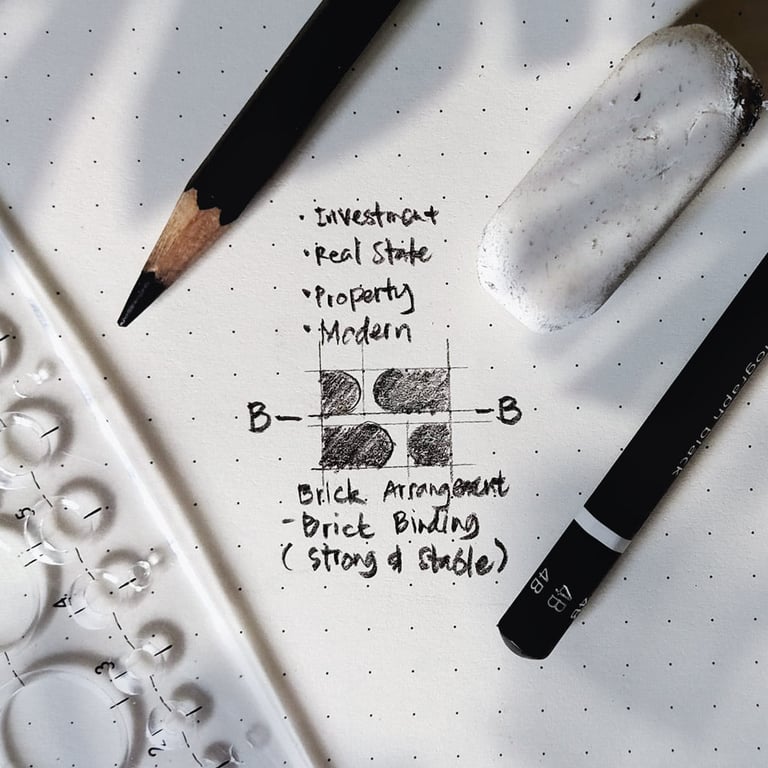 · Investment
· Real State
· Property
· Modern
B – – B
Brick Arrangement
- Brick Binding
(Strong & Stable)
ograph black
4B
4B
4B
5
4
3
2